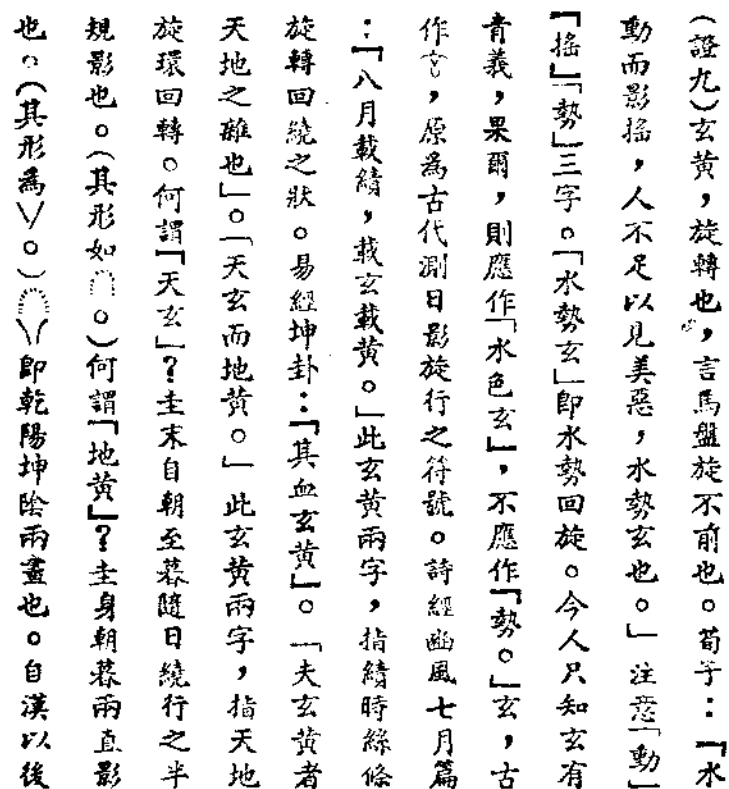 (證九)玄黄，旋轉也，言馬盤旋不前也。荀子：「水
動而影搖，人不足以見美惡，水勢玄也。」注意「動」
「搖」「勢」三字。「水勢玄」即水勢回旋。今人只知玄有
青義，果爾，則應作「水色玄」，不應作「勢。」玄，古
作，原爲古代測日影旋行之符號。詩經豳風七月篇
：「八月載績，載玄載黄。」此玄黄兩字，指績時絲條
旋轉回繞之狀。易經坤卦：「其血玄黄」。「夫玄黄者
天地之雜也」。「天玄而地黄。」此玄黄兩字，指天地
旋環回轉。何謂「天玄」？圭末自朝至暮隨日繞行之半
規影也。(其形如。)何謂「地黄」？圭身朝暮兩直影
也。(其形爲╲╱。)╲╱即乾陽坤陰兩畫也。自漢以後